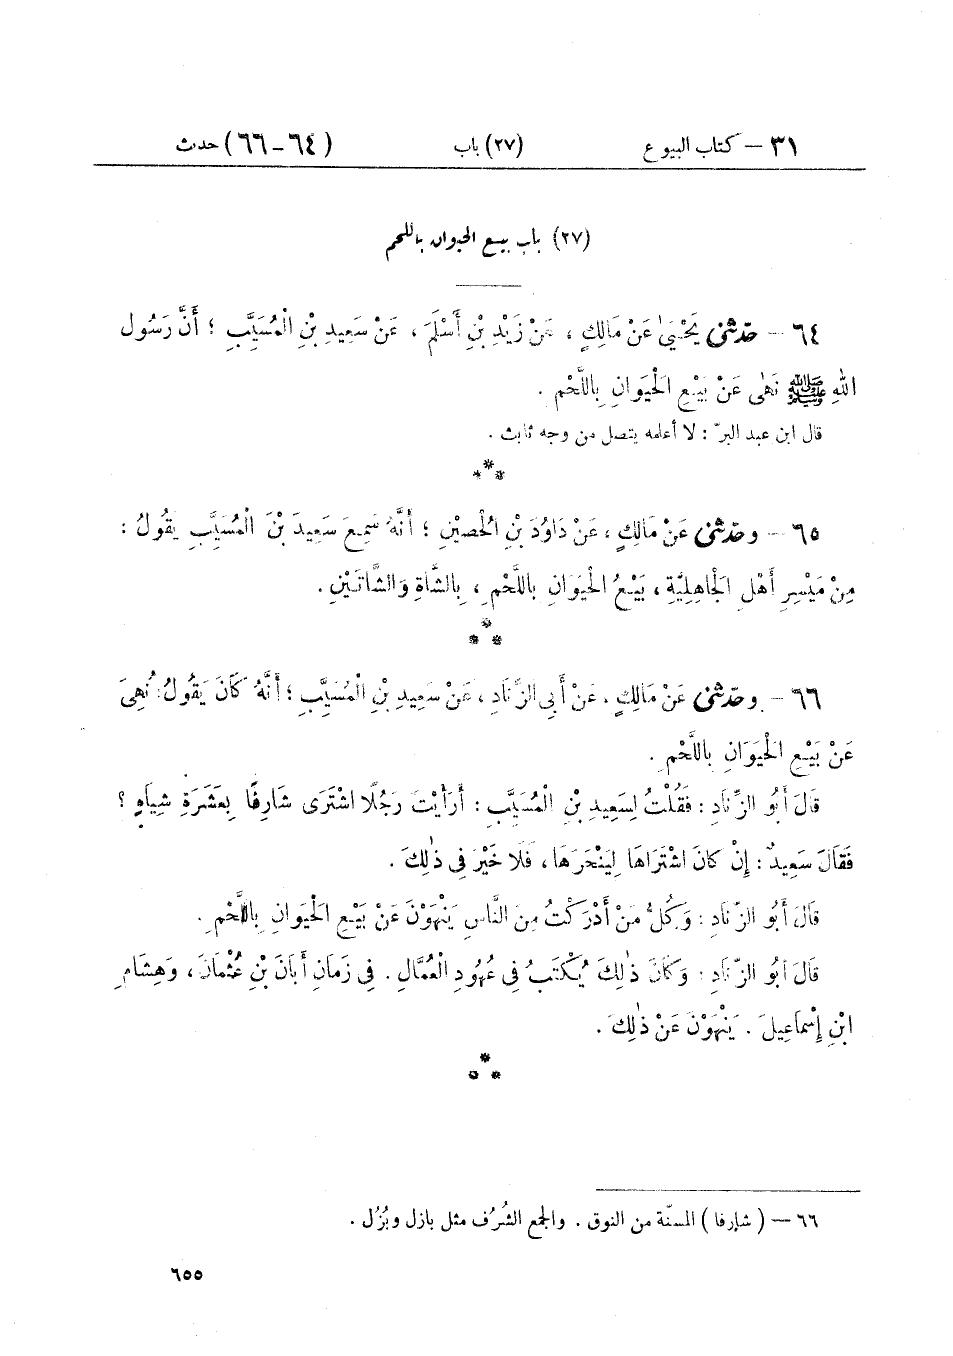 ٣١ – كتاب البيوع (٢٧) باب (٦٤-٦٦) حدث
(٢٧) باب بيع الحيوان باللحم
٦٤ – حَدَّثَنِي يَحْيَىٰ عَنْ مَالِكٍ ، عَنْ زَيْدِ بْنِ أَسْلَمَ ، عَنْ سَعِيدِ بْنِ الْمُسَيَّبِ ؛ أَنَّ رَسُولَ
اللهِ ﷺ نَهَىٰ عَنْ بَيْعِ الْحَيَوَانِ بِاللَّحْمِ .
قال ابن عبد البرّ : لا أعلمه يتصل من وجه ثابت .
***
٦٥ – وحَدَّثَنِي عَنْ مَالِكٍ ، عَنْ دَاوُدَ بْنِ الْحُصَيْنِ ؛ أَنَّهُ سَمِعَ سَعِيدَ بْنَ الْمُسَيَّبِ يَقُولُ :
مِنْ مَيْسِرِ أَهْلِ الْجَاهِلِيَّةِ ، بَيْعُ الْحَيَوَانِ بِاللَّحْمِ ، بِالشَّاةِ وَالشَّاتَيْنِ .
***
٦٦ – وحَدَّثَنِي عَنْ مَالِكٍ ، عَنْ أَبِي الزِّنَادِ ، عَنْ سَعِيدِ بْنِ الْمُسَيَّبِ ؛ أَنَّهُ كَانَ يَقُولُ : نُهِيَ
عَنْ بَيْعِ الْحَيَوَانِ بِاللَّحْمِ .
قَالَ أَبُو الزِّنَادِ : فَقُلْتُ لِسَعِيدِ بْنِ الْمُسَيَّبِ : أَرَأَيْتَ رَجُلًا اشْتَرَى شَارِفًا بِعَشَرَةِ شِيَاهٍ ؟
فَقَالَ سَعِيدٌ : إِنْ كَانَ اشْتَرَاهَا لِيَنْحَرَهَا ، فَلَا خَيْرَ فِي ذٰلِكَ .
قَالَ أَبُو الزِّنَادِ : وَكُلُّ مَنْ أَدْرَكْتُ مِنَ النَّاسِ يَنْهَوْنَ عَنْ بَيْعِ الْحَيَوَانِ بِاللَّحْمِ .
قَالَ أَبُو الزِّنَادِ : وَكَانَ ذٰلِكَ يُكْتَبُ فِي عُهُودِ الْعُمَّالِ . فِي زَمَانِ أَبَانَ بْنِ عُثْمَانَ ، وَهِشَامِ
ابْنِ إِسْمَاعِيلَ . يَنْهَوْنَ عَنْ ذٰلِكَ .
***
٦٦ – ( شارفا ) المسنّة من النوق . والجمع الشُرُف مثل بازل وبُزُل .
٦٥٥